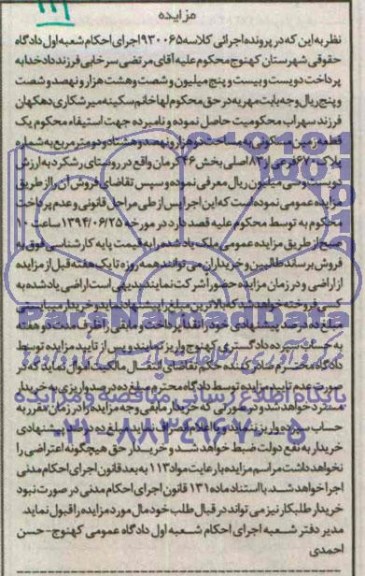 مزایده
نظر به این که در پرونده اجرائی کلاسه ۹۳۰۰۶۵ اجرای احکام شعبه اول دادگاه
حقوقی شهرستان کهنوج محکوم علیه آقای مرتضی سرخابی فرزند دادخدا به
پرداخت دویست و بیست و پنج میلیون و شصت و هشت هزار و نهصد و شصت
و پنج ریال وجه بابت مهریه در حق محکوم لها خانم سکینه میرشکاری دهکهان
فرزند سهراب محکومیت حاصل نموده و نامبرده جهت استیفاء محکوم یک
قطعه زمین مسکونی به مساحت دو هزار و نهصد و هشتاد و دو متر مربع به شماره
پلاک ۶۷۰ فرعی از ۸۳ اصلی بخش ۴۶ کرمان واقع در روستای رشکرد به ارزش
دویست و سی میلیون ریال معرفی نموده و سپس تقاضای فروش آن را از طریق
مزایده عمومی نموده است که این اجرا پس از طی مراحل قانونی و عدم پرداخت
محکوم به توسط محکوم علیه قصد دارد در مورخه ۱۳۹۴/۰۶/۲۵ ساعت ۱۰
صبح از طریق مزایده عمومی ملک یاد شده را به قیمت پایه کارشناسی فوق به
فروش برساند طالبین و خریداران می توانند همه روزه تا یک هفته قبل از مزایده
از اراضی و در زمان مزایده حضور آشرکت نمایند بدیهی است اراضی یاد شده به
کسی فروخته خواهد شد که بالاترین مبلغ را پیشنهاد نماید و خریدار میبایستی
مبلغ ده درصد پیشنهادی خود را نقدا پرداخت و مابقی را ظرف مدت دو هفته
به حساب سپرده دادگستری کهنوج واریز نمایند و پس از تایید مزایده توسط
دادگاه محترم صادر کننده حکم تقاضای انتقال مالکیت اموال نماید که در
صورت عدم تایید مزایده توسط دادگاه محترم مبلغ ده درصد واریزی به خریدار
مسترد خواهد شد و در صورتی که خریدار مابقی وجه مزایده را در زمان مقرر به
حساب سپرده واریز ننماید و یا اعلام انصراف نماید مبلغ ده درصد پیشنهادی
خریدار به نفع دولت ضبط خواهد شد و خریدار حق هیچگونه اعتراضی را
نخواهد داشت مراسم مزایده با رعایت مواد ۱۱۳ به بعد قانون اجرای احکام مدنی
اجرا خواهد شد. با استناد ماده ۱۳۱ قانون اجرای احکام مدنی در صورت نبود
خریدار طلبکار نیز می تواند در قبال طلب خود مال مورد مزایده را قبول نماید.
مدیر دفتر شعبه اجرای احکام شعبه اول دادگاه عمومی کهنوج-حسن
احمدی
ParsNamadData
پایگاه اطلاع رسانی مناقصه و مزایده
۰۲۱-۸۸۳۴۹۶۷۰-۵